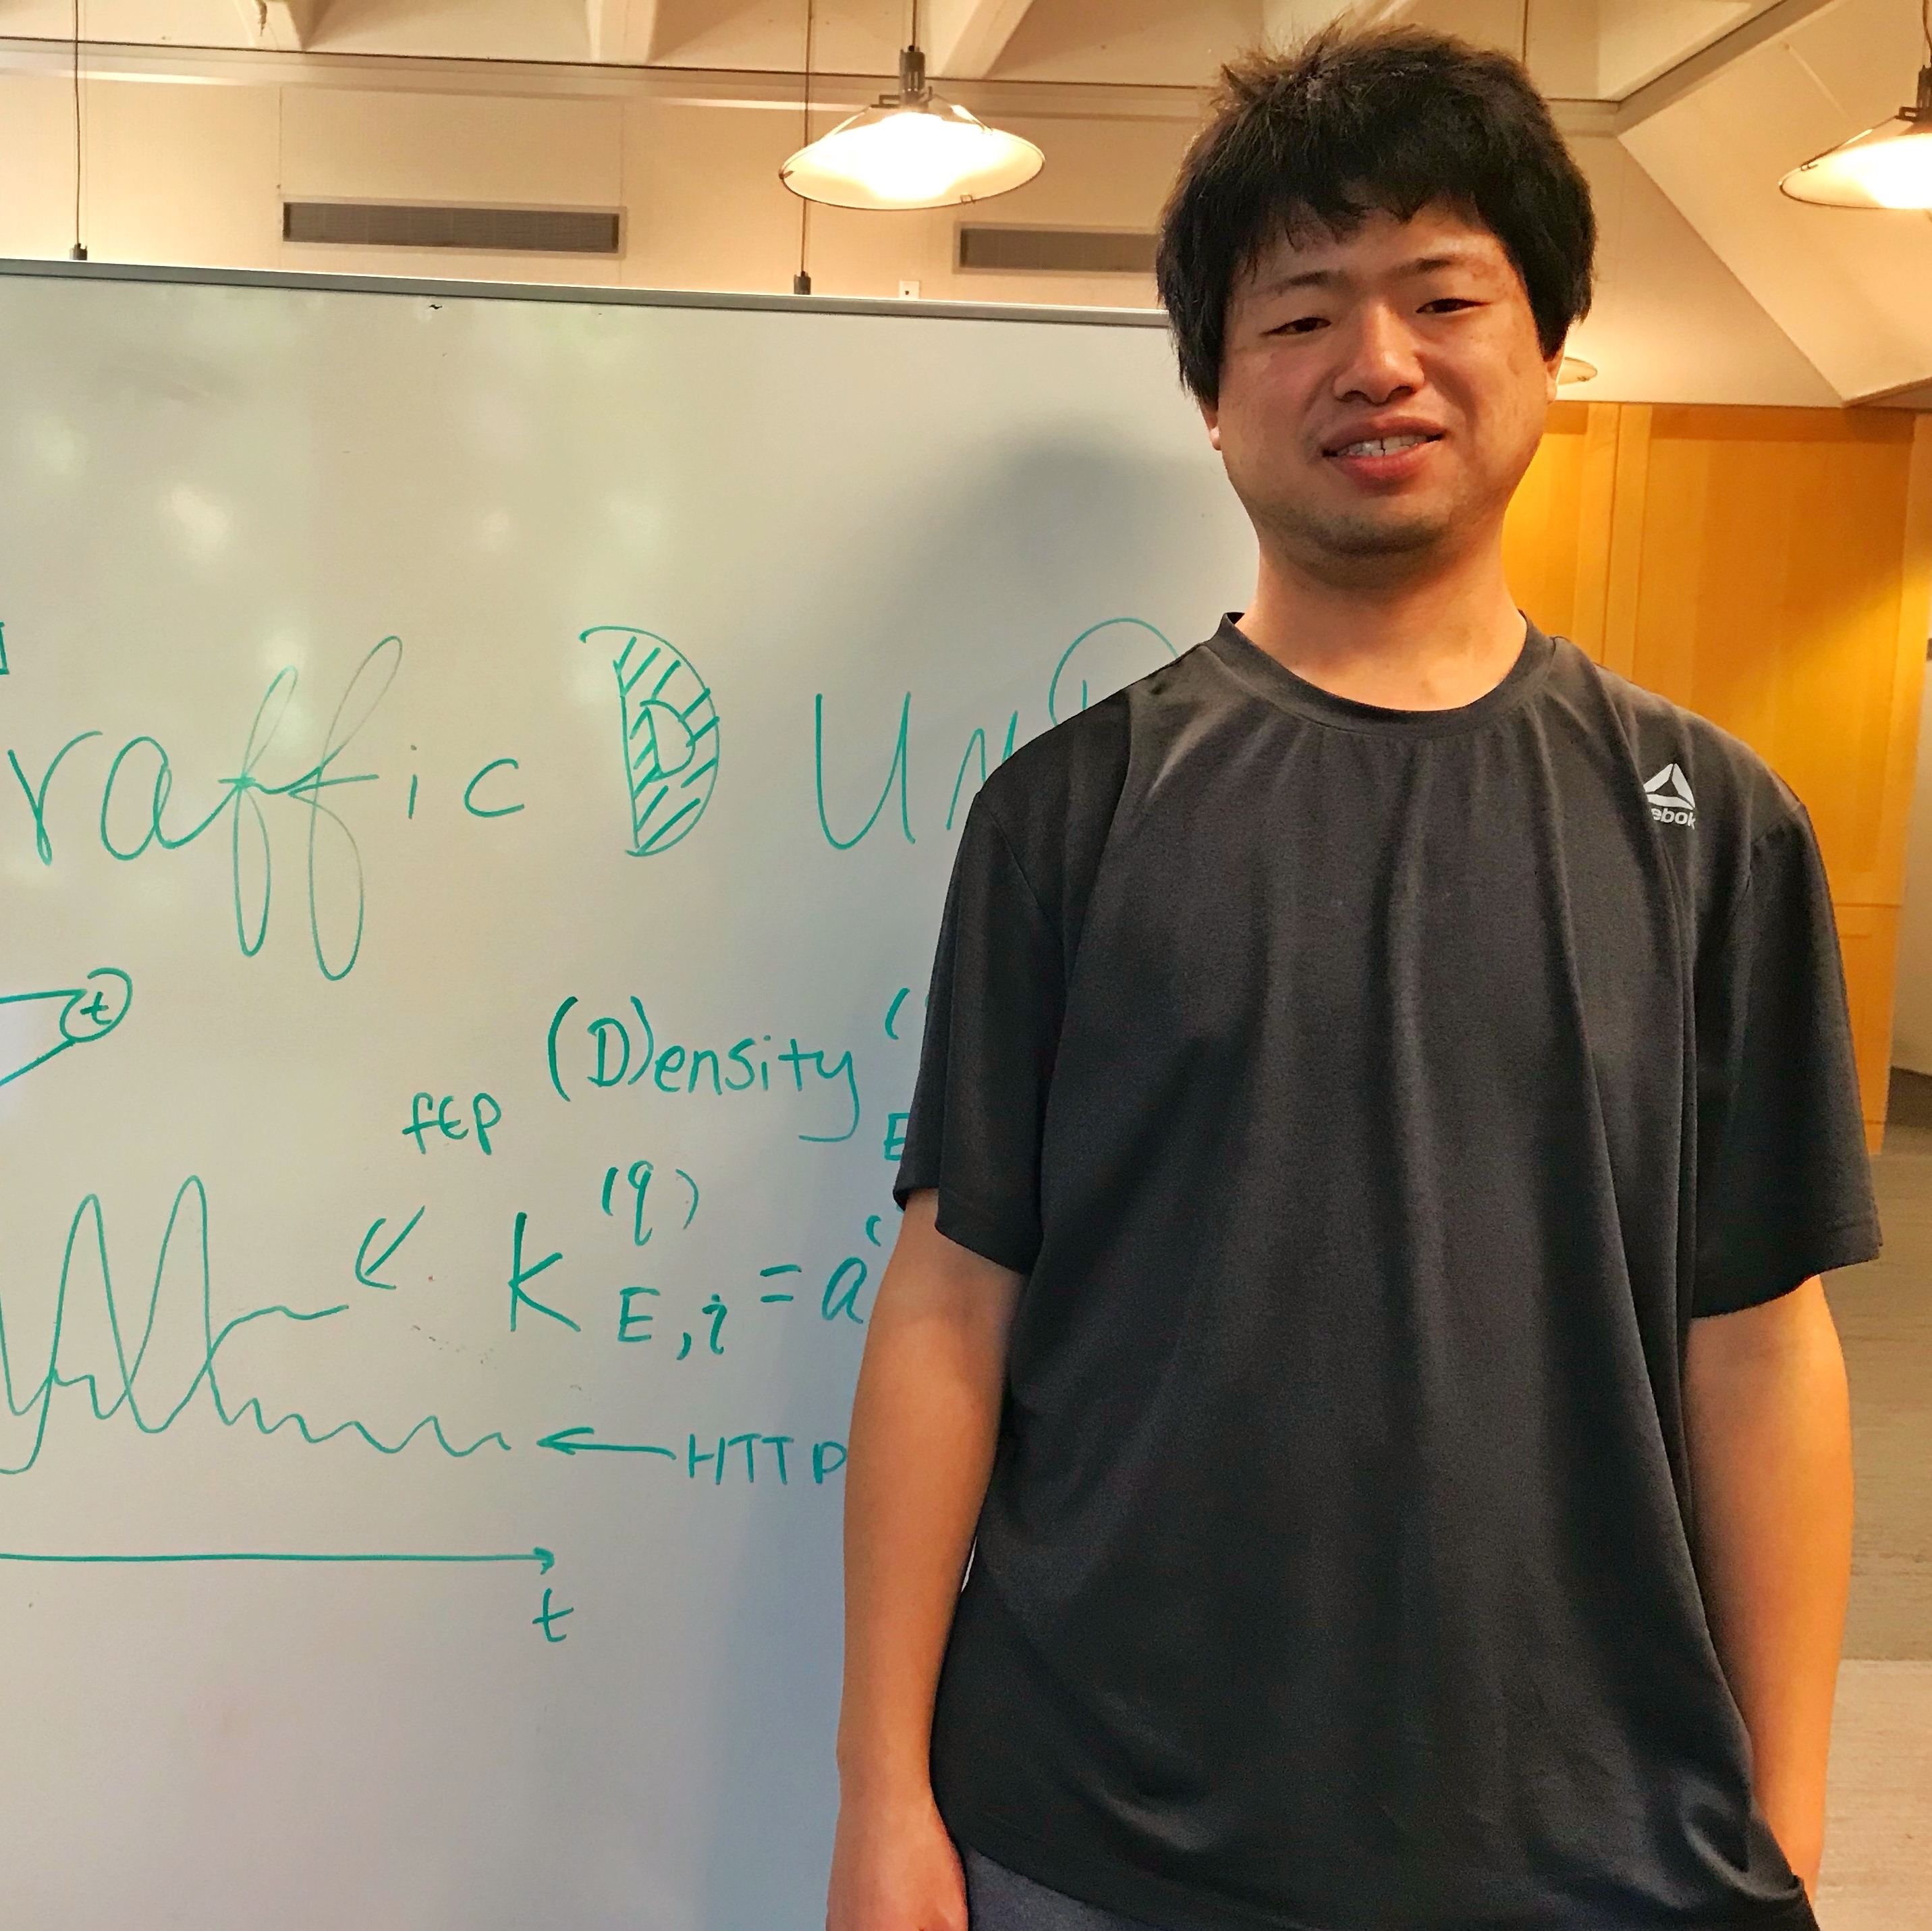 raffic D Un
t
(D)ensity
fEp
(q)
K E,i = a
HTTP
t
ebok